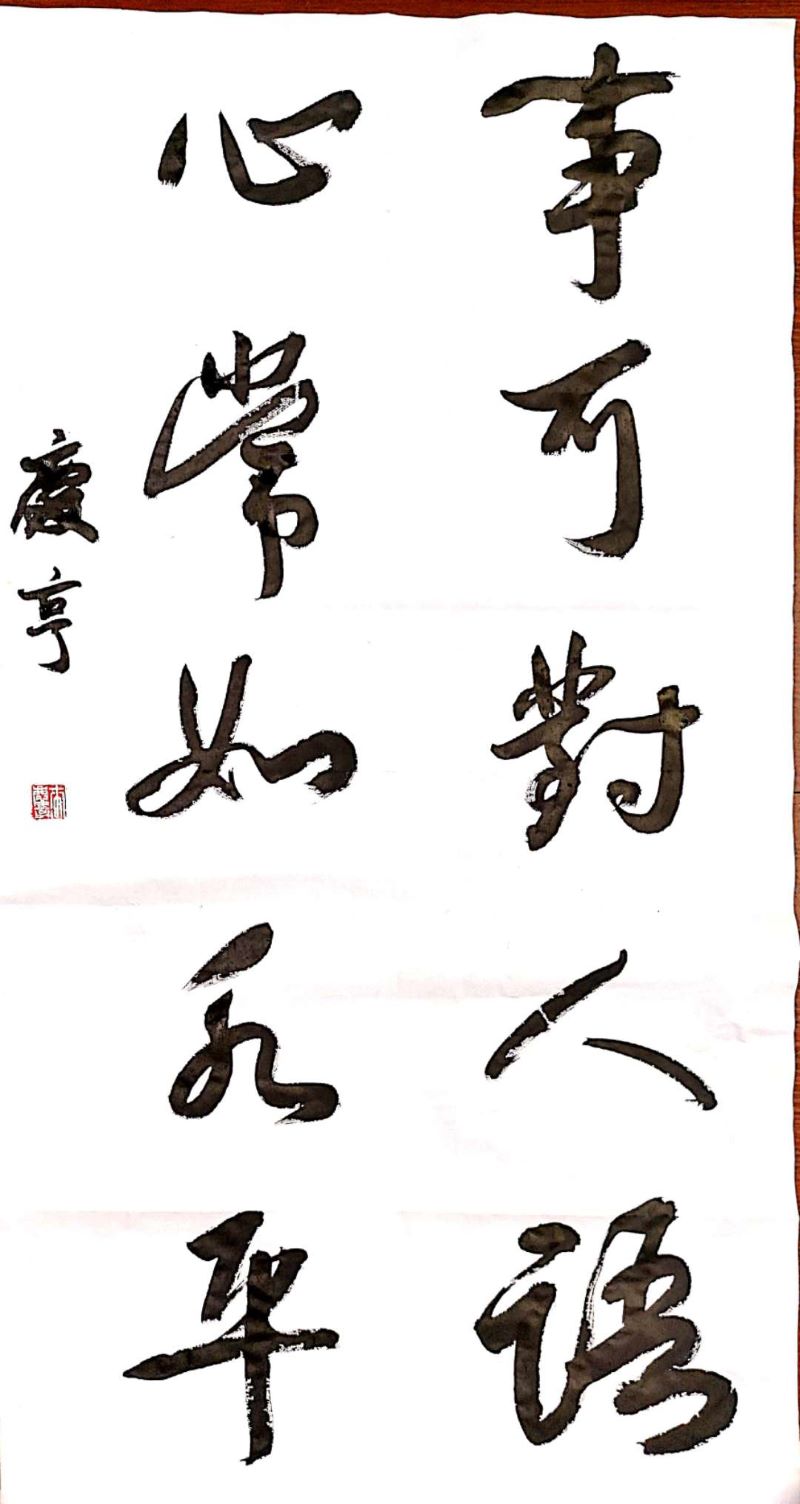 事可對人語
心常如水平
慶亨